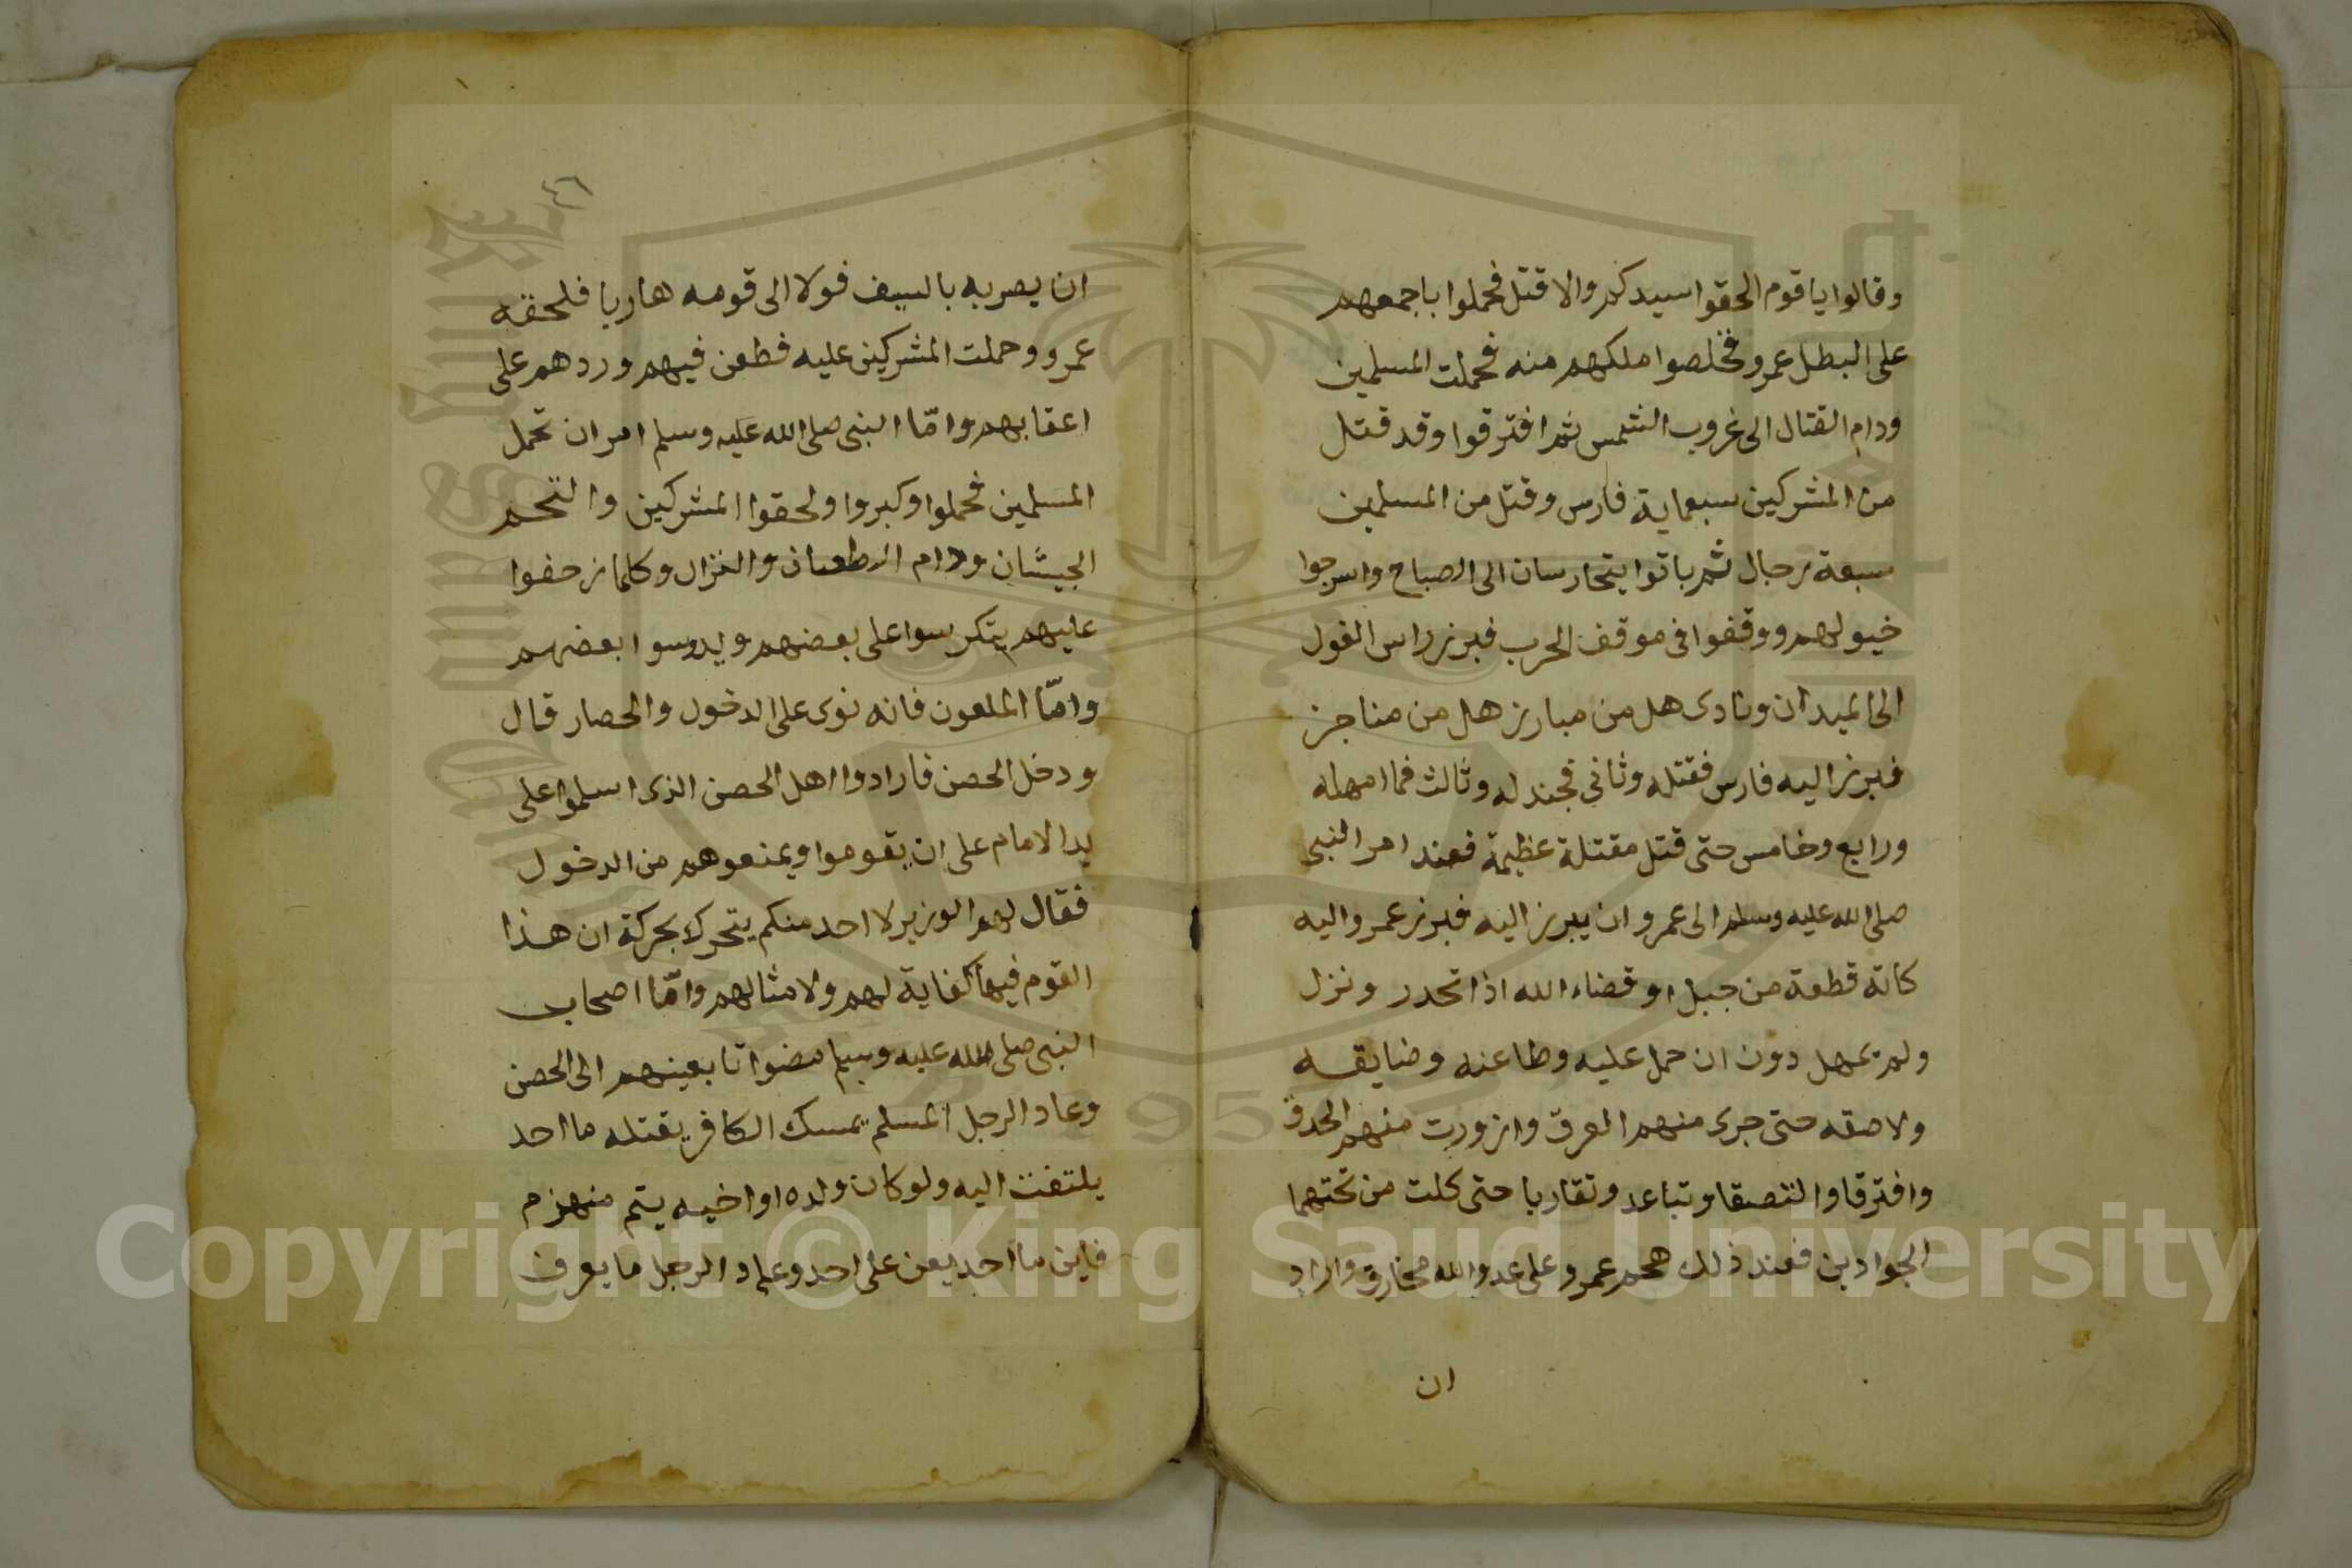 وقالوا يا قوم الحقوا سيدكم والا قتل فحملوا باجمعهم
على البطل عمرو فخلصوا ملكهم منه فحملت المسلمين
ودام القتال الى غروب الشمس ثم افترقوا وقد قتل
من المشركين سبعماية فارس وقتل من المسلمين
سبعة رجال ثم باتوا يتحارسان الى الصباح واسرجوا
خيولهم ووقفوا فى موقف الحرب فبرز راس الغول
الى الميدان ونادى هل من مبارز هل من مناجز
فبرز اليه فارس فقتله وثاني فجندله وثالث فما امهله
ورابع وخامس حتى قتل مقتلة عظيمة فعند امر النبى
صلى الله عليه وسلم الى عمرو ان يبرز اليه فبرز عمرو اليه
كانه قطعة من جبل او قضاء الله اذا تحدر ونزل
ولم يمهل دون ان حمل عليه وطاعنه وضايقه
ولاصقه حتى جرى منهم العرق وازورت منهم الحدق
وافترقا والتصقا وتباعد وتقاربا حتى كلت من تحتهما
الجوادين فعند ذلك هجم عمرو على عدو الله مخارق واراد
ان
٤٦
ان يضربه بالسيف فولا الى قومه هاربا فلحقه
عمرو وحملت المشركين عليه فطعن فيهم وردهم على
اعقابهم وامّا النبى صلى الله عليه وسلم امر ان تحمل
المسلمين فحملوا وكبروا ولحقوا المشركين والتحم
الجيشان ودام الطعان والنزال وكلما زحفوا
عليهم يتكرسوا على بعضهم ويدوسوا بعضهم
وامّا الملعون فانه نوى على الدخول والحصار قال
ودخل الحصن فارادوا اهل الحصن الذى اسلموا على
يد الامام على ان يقوموا ويمنعوهم من الدخول
فقال لهم الوزير لا احد منكم يتحرك بحركة ان هذا
القوم فيها كفاية لهم ولامثالهم وامّا اصحاب
النبى صلى الله عليه وسلم مضوا تابعينهم الى الحصن
وعاد الرجل المسلم يمسك الكافر يقتله ما احد
يلتفت اليه ولو كان ولده او اخيه يتم منهزم
فاين ما احد يعن على احد وعاد الرجل ما يعرف
Copyright © King Saud University